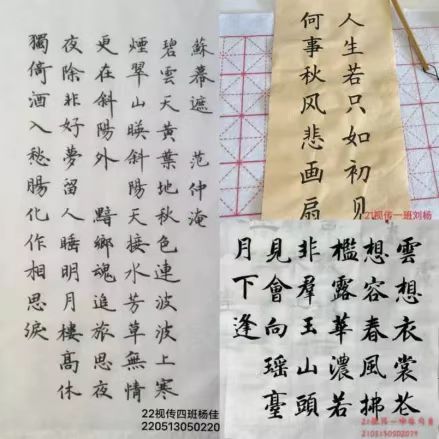 蘇幕遮 范仲淹
碧雲天黃葉地秋色連波波上寒
煙翠山暎斜陽天接水芳草無情
更在斜陽外 黯鄉魂追旅思夜
夜除非好夢留人睡明月樓高休
獨倚酒入愁腸化作相思淚
22视传四班杨佳
220513050220
人生若只如初见
何事秋风悲画扇
21视传一班刘杨
雲想衣裳花
想容春風拂
檻露華濃若
非羣玉山頭
見會向瑶臺
月下逢
21视传一